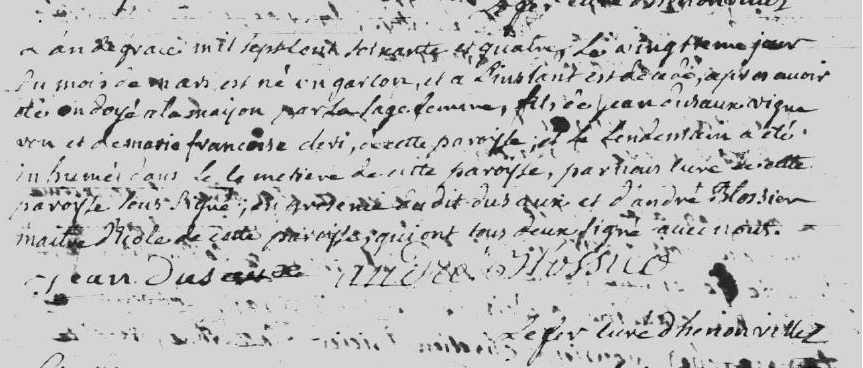 curé d'henonvillez
L'an de grace mil sept cent soixante et quatre, Le vingtieme jour
du mois de mars est né un garcon, et a L'instant est decedé, apres avoir
été ondoyé a la maison par La sage femme, fils de jean dusaux vigne
ron et de marie francoise devi, de cette paroisse, et le lendemain a été
inhumé dans Le Cemetiere de cette paroisse, par nous curé de cette
paroisse sous signé, en presence du dit dusaux et d'andré Blossier
maitre d'Ecole de cette paroisse, qui ont tous deux signé avec nous.
jean dusaux andré Blossier
curé d'henonvillez